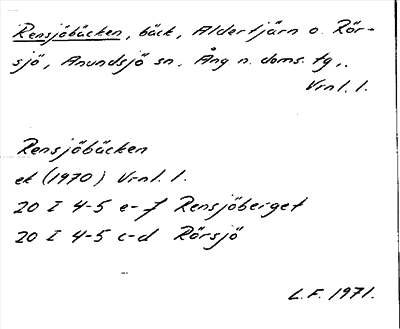 Rensjöbäcken, bäck, Aldertjärn o. Rör-
sjö, Anundsjö sn. Ång n. doms. tg.,
Vrnl. l.
Rensjöbäcken
ek (1970) Vrnl. l.
20 I 4-5 e-f Rensjöberget
20 I 4-5 c-d Rörsjö
L.F. 1971.